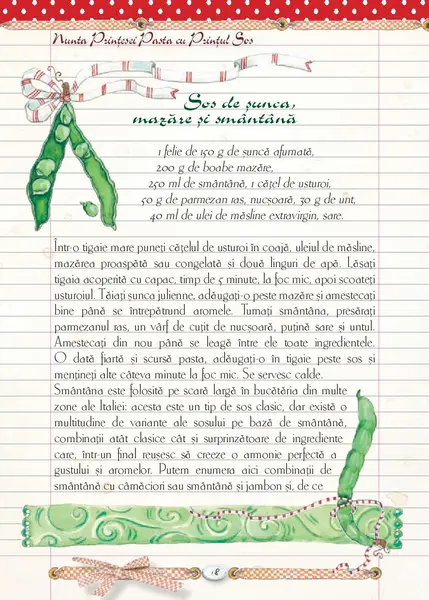 Nunta Prinţesei Pasta cu Prinţul Sos
Sos de şunca,
mazăre şi smântână
1 felie de 150 g de şuncă afumată,
200 g de boabe mazăre,
250 ml de smântână, 1 căţel de usturoi,
50 g de parmezan ras, nucşoară, 30 g de unt,
40 ml de ulei de măsline extravirgin, sare.
Într-o tigaie mare puneţi căţelul de usturoi în coajă, uleiul de măsline,
mazărea proaspătă sau congelată şi două linguri de apă. Lăsaţi
tigaia acoperită cu capac, timp de 5 minute, la foc mic, apoi scoateţi
usturoiul. Tăiaţi şunca julienne, adăugaţi-o peste mazăre şi amestecaţi
bine până se întrepătrund aromele. Turnaţi smântâna, presăraţi
parmezanul ras, un vârf de cuţit de nucşoară, puţină sare şi untul.
Amestecaţi din nou până se leagă între ele toate ingredientele.
O dată fiartă şi scursă pasta, adăugaţi-o în tigaie peste sos şi
menţineţi alte câteva minute la foc mic. Se servesc calde.
Smântâna este folosită pe scară largă în bucătăria din multe
zone ale Italiei: acesta este un tip de sos clasic, dar există o
multitudine de variante ale sosului pe bază de smântână,
combinaţii atât clasice cât şi surprinzătoare de ingrediente
care, într-un final reuşesc să creeze o armonie perfectă a
gustului şi aromelor. Putem enumera aici combinaţii de
smântână cu cârnăciori sau smântână şi jambon şi, de ce